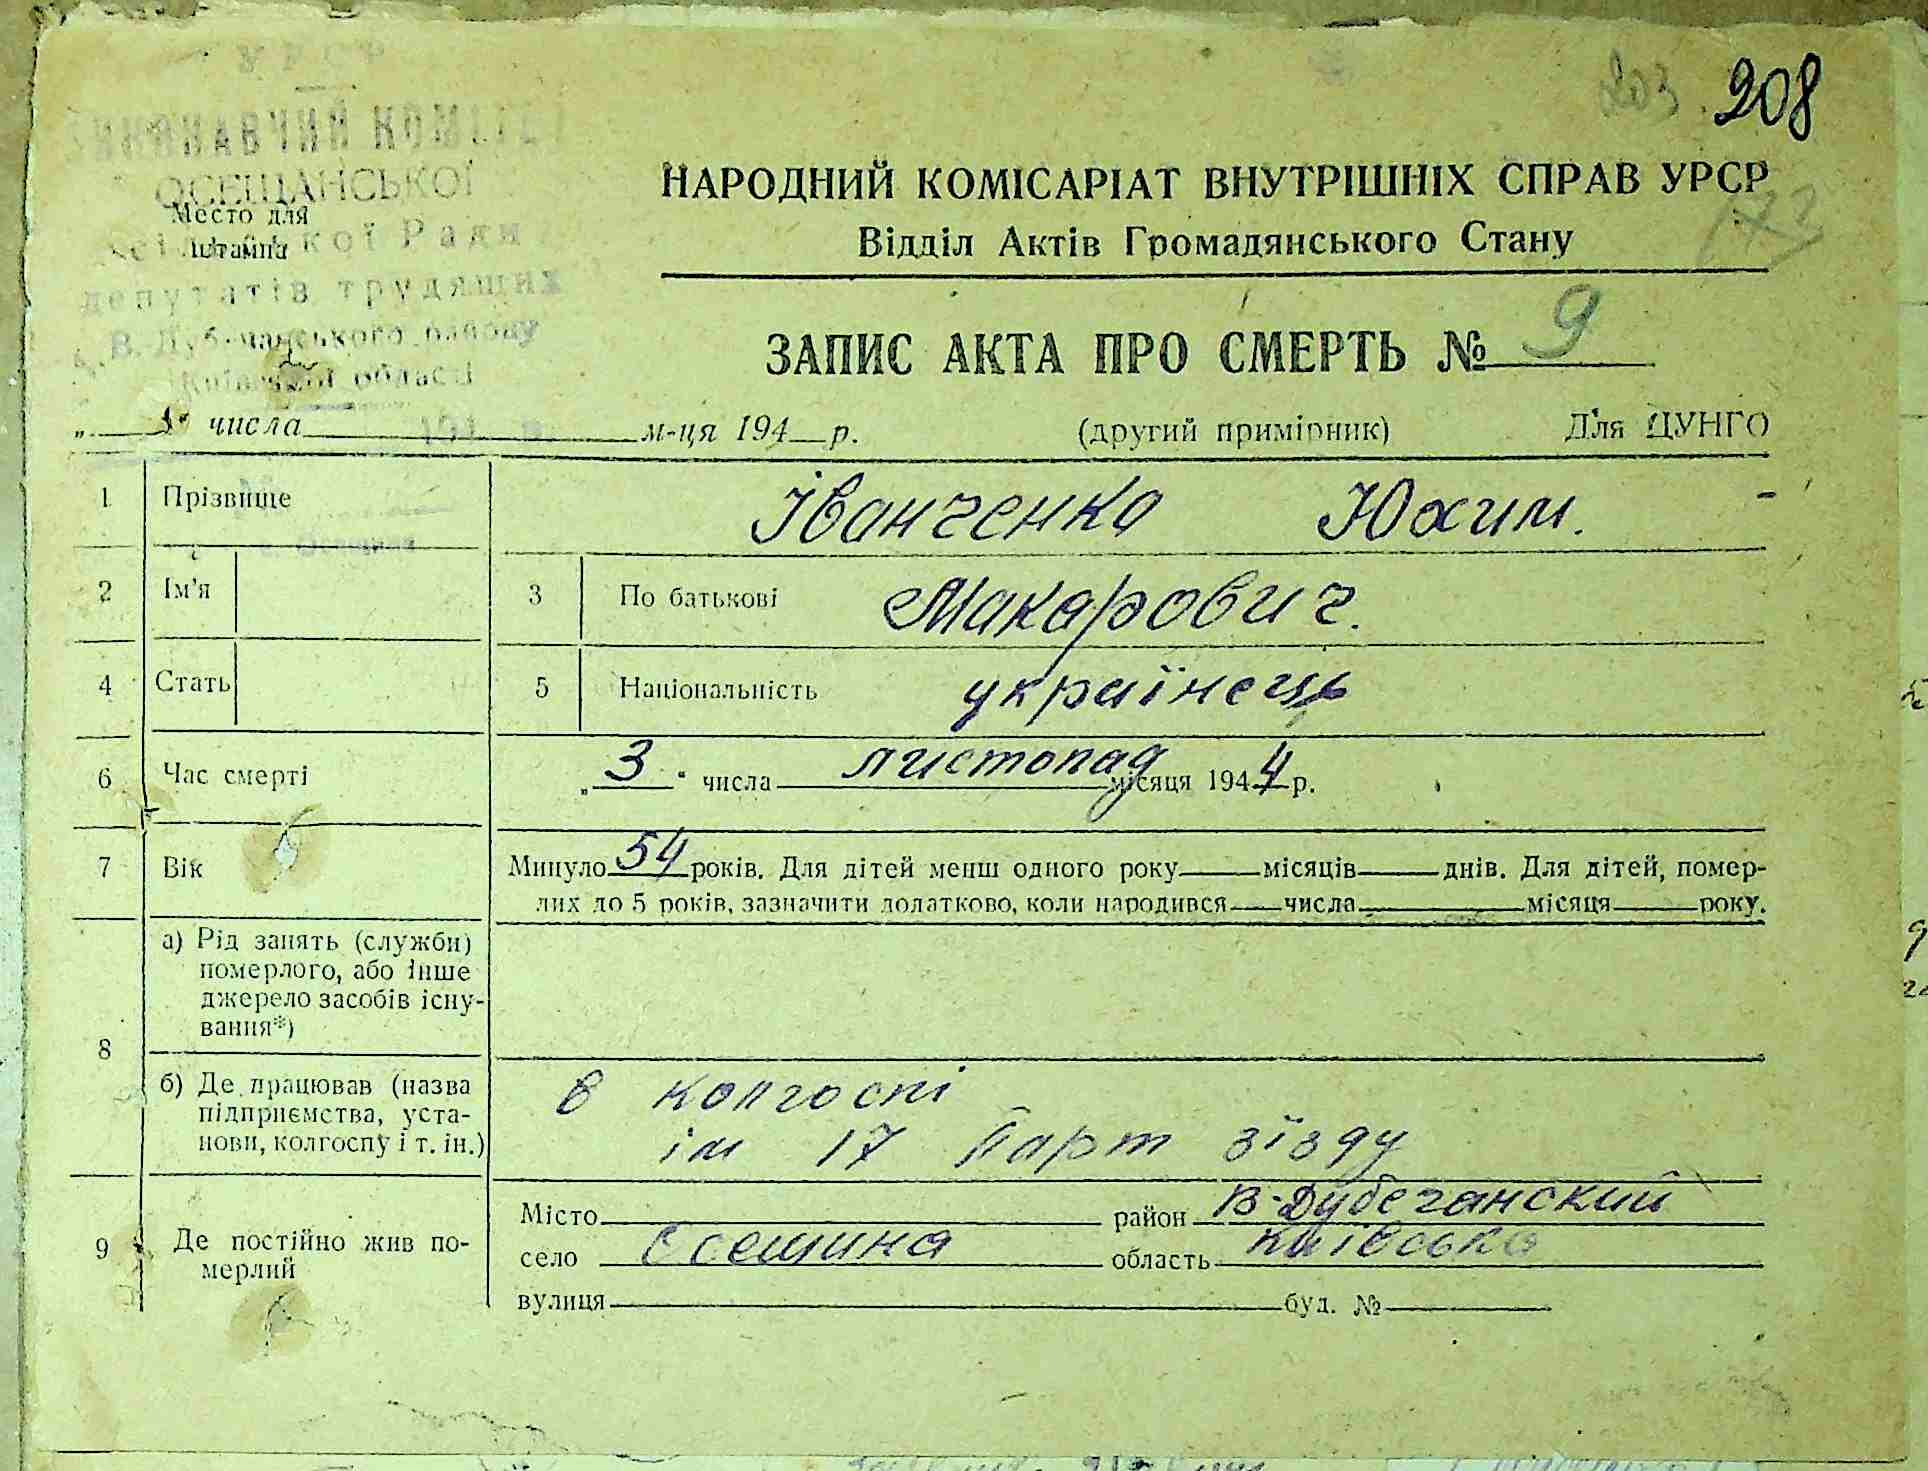 УРСР
203 208
ВИКОНАВЧИЙ КОМІТЕТ
ОСЕЩАНСЬКОЇ
Место для
штампа
сільської Ради
депутатів трудящих
В. Дубечанського району
Київської області
НАРОДНИЙ КОМІСАРІАТ ВНУТРІШНІХ СПРАВ УРСР
Відділ Актів Громадянського Стану
ЗАПИС АКТА ПРО СМЕРТЬ № 9
„ " числа м-ця 194 р. (другий примірник) Для ЦУНГО
1 Прізвище Іванченко Юхим.
с. Осещина
2 Ім'я 3 По батькові Макарович.
4 Стать 5 Національність українець
6 Час смерті „ 3 " числа листопад місяця 1944 р.
7 Вік Минуло 54 років. Для дітей менш одного року місяців днів. Для дітей, помер-
лих до 5 років, зазначити додатково, коли народився числа місяця року.
8 а) Рід занять (служби)
померлого, або інше
джерело засобів існу-
вання*)
б) Де працював (назва
підприємства, уста-
нови, колгоспу і т. ін.)
в колгоспі
ім 17 Парт зїзду
9 Де постійно жив по-
мерлий
Місто район В-Дубечанский
село Осещина область Київсько
вулиця буд. №